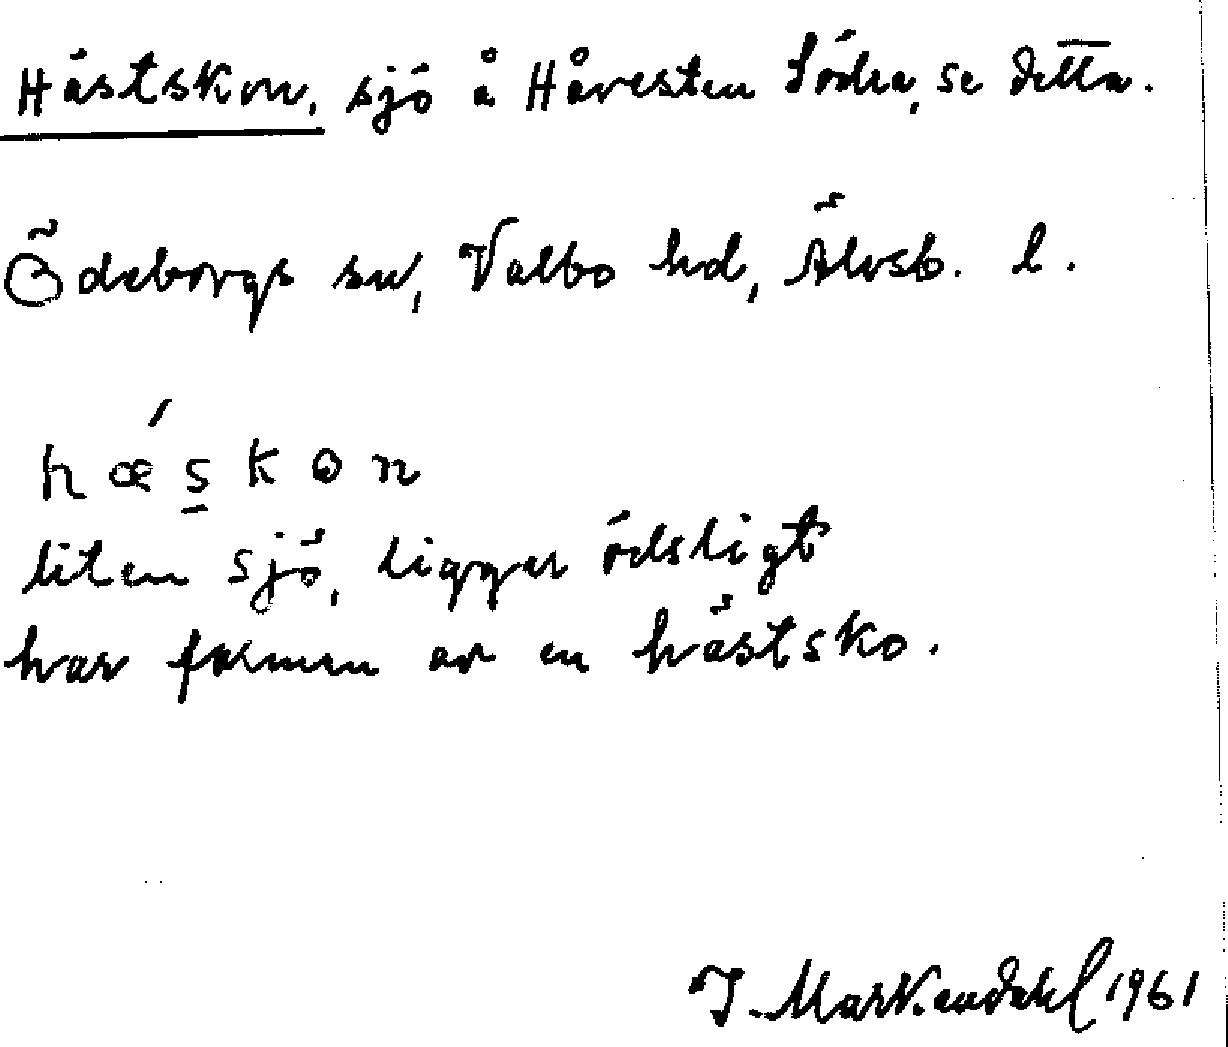 Hästskon, sjö å Håvesten Södra, se detta.
Ödeborgs sn, Valbo hd, Älvsb. l.
hǽs̠kon
liten sjö, ligger ödsligt
har formen av en hästsko.
J. Markendahl 1961